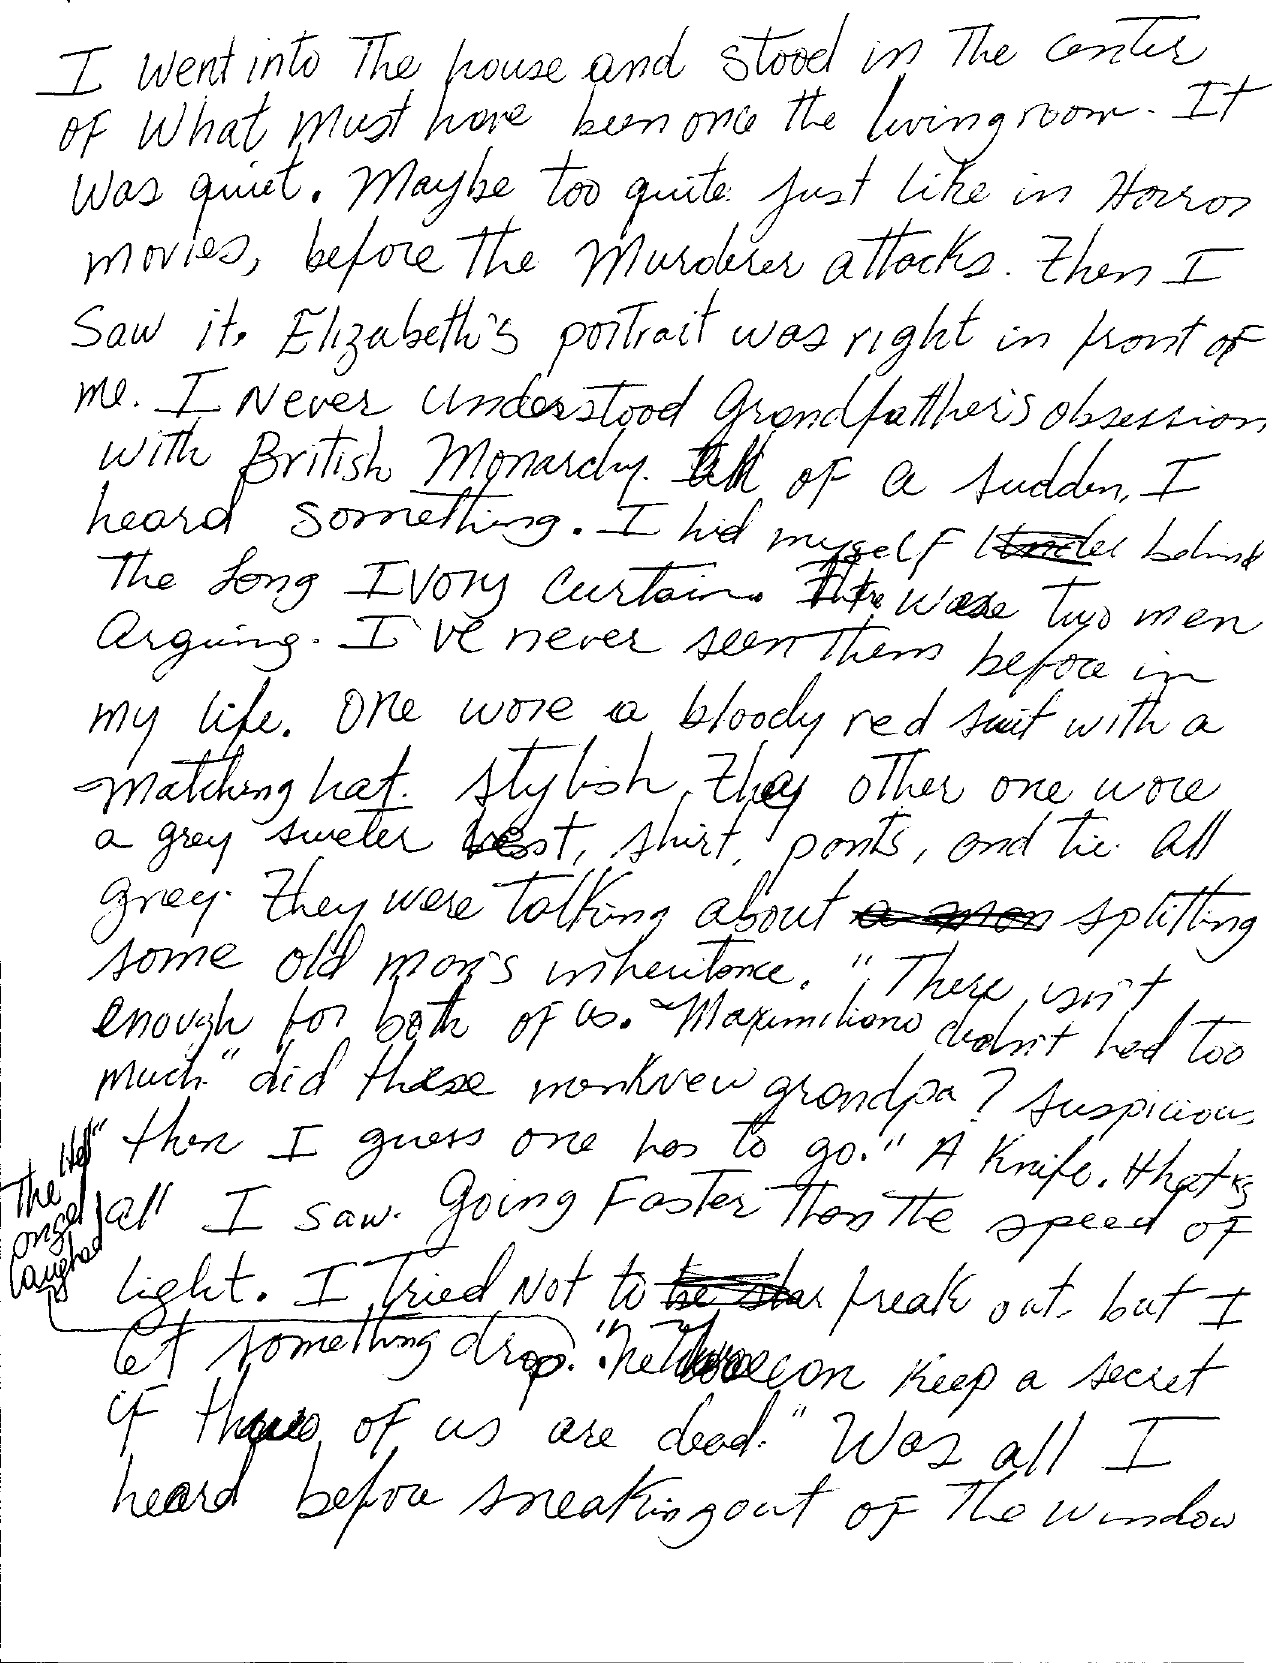 I went into the house and stood in the center
of what must have been once the living room. It
was quiet. Maybe too quite. just like in Horror
movies, before the Murderer attacks. then I
saw it. Elizabeth's portrait was right in front of
me. I Never understood Grandfather's obsession
with British Monarchy. All of a sudden, I
heard something. I hid myself behind
The Long Ivory Curtain. There were two men
Arguing. I've never seen them before in
my life. One wore a bloody red suit with a
matching hat. stylish, they other one wore
a grey sweter vest, shirt, pants, and tie. All
grey. They were talking about splitting
some old man's inheritance. "There isn't
enough for both of us. Maximiliano didn't had too
much." did these men knew grandpa? suspicious
"then I guess one has to go." A Knife. that's
all I saw. Going Faster than the speed of
light. I tried Not to freak out, but I
let something drop. can keep a secret
if of us are dead." Was all I
heard before sneaking out of the window
The
angel
laughed